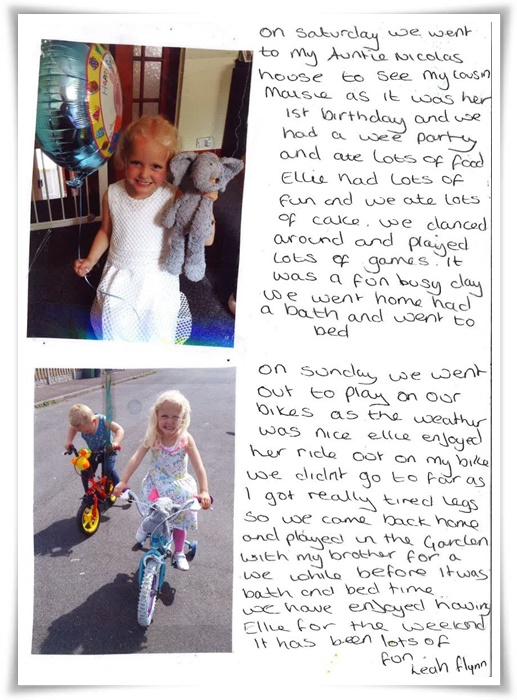 on saturday we went
to my Auntie Nicolas
house to see my cousin
Maisie as it was her
1st birthday and we
had a wee party
and ate lots of food
Ellie had lots of
fun and we ate lots
of cake. we danced
around and played
lots of games. it
was a fun busy day
we went home had
a bath and went to
bed
on sunday we went
out to play on our
bikes as the weather
was nice ellie enjoyed
her ride out on my bike
we didnt go to far as
I got really tired legs
so we came back home
and played in the Garden
with my brother for a
we while before it was
bath and bed time.
we have enjoyed having
Ellie for the weekend
it has been lots of
fun. Leah flynn